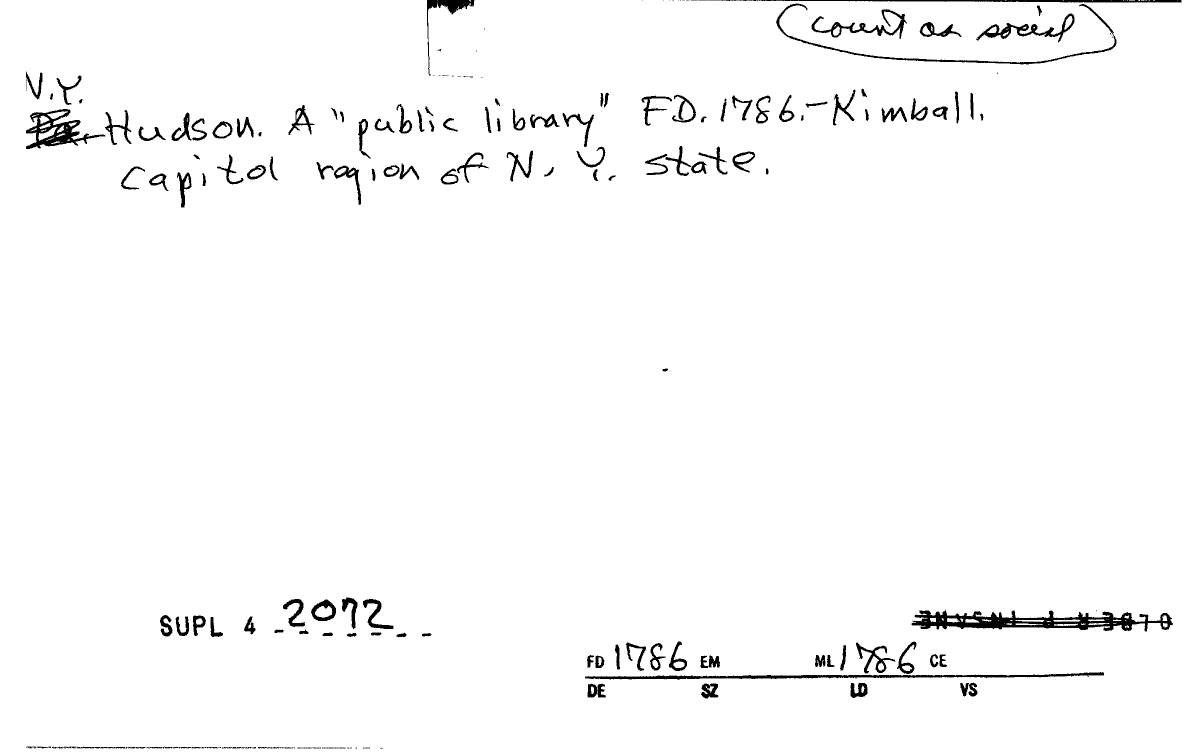 (count as social)
N.Y.
Hudson. A "public library" FD. 1786.-Kimball.
Capitol region of N.Y. state.
SUPL 4 2072
FD 1786 EM ML 1786 CE
DE SZ LD VS